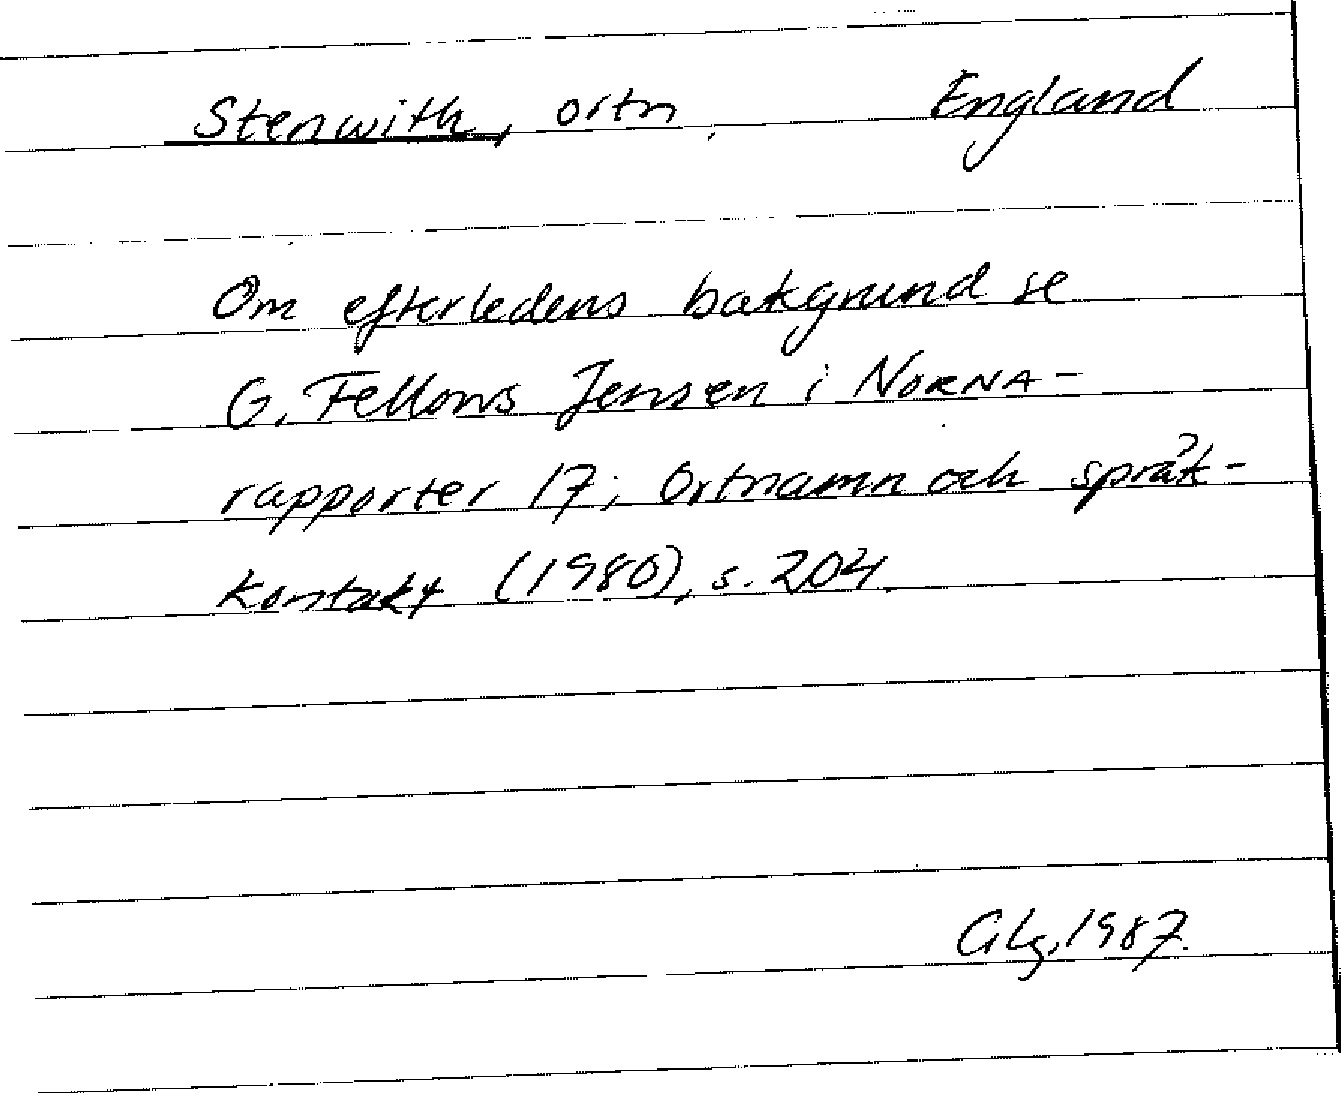 Stenwith, ortn. England
Om efterledens bakgrund se
G. Fellows Jensen i NORNA-
rapporter 17; Ortnamn och språk-
kontakt (1980), s. 204.
1987.